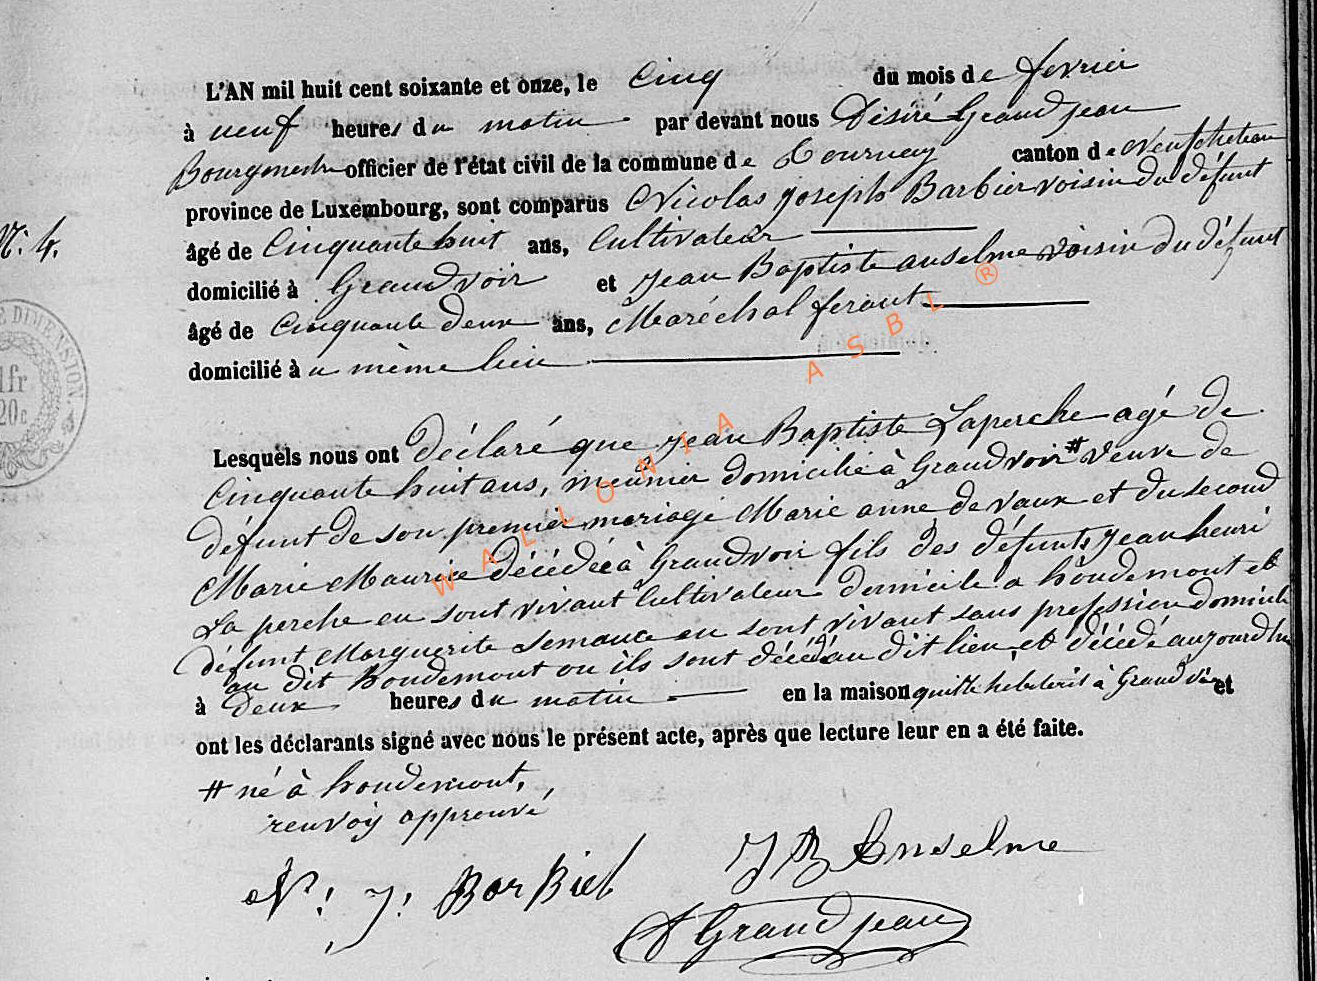 L'AN mil huit cent soixante et onze, le Cinq du mois de fevrier
à neuf heures du matin par devant nous Désiré Grandjean
Bourgmestre officier de l'état civil de la commune de Tournay canton de Neufchateau
province de Luxembourg, sont comparus Nicolas Joseph Barbier voisin du défunt
N°. 4.
âgé de Cinquante huit ans, Cultivateur
domicilié à Grandvoir et Jean Baptiste anselme voisin du défunt
âgé de Cinquante deux ans, Maréchal ferant
domicilié à u même lieu
DIMENSION
1fr
20c
Lesquels nous ont déclaré que Jean Baptiste Laperche agé de
Cinquante huit ans, meunier domicilié à Grandvoir # veuve de
défunt de son premier mariage Marie anne de vaux et du second
Marie Maurice décédée à Grandvoir fils des défunts Jean henri
La perche en sont vivant Cultivateur domicile a houdemont et
défunt Marguerite Semance en sont vivant sans profession domicile
au dit houdemont ou ils sont décédé au dit lieu et décédé aujourdhui
à deux heures du matin en la maison qu'ille hébiterit à Grandvoir et
ont les déclarants signé avec nous le présent acte, après que lecture leur en a été faite.
# né à houdemont,
renvoy approuvé
N. J. Barbier
J B Anselme
D Grandjean
WALLONIA ASBL ®